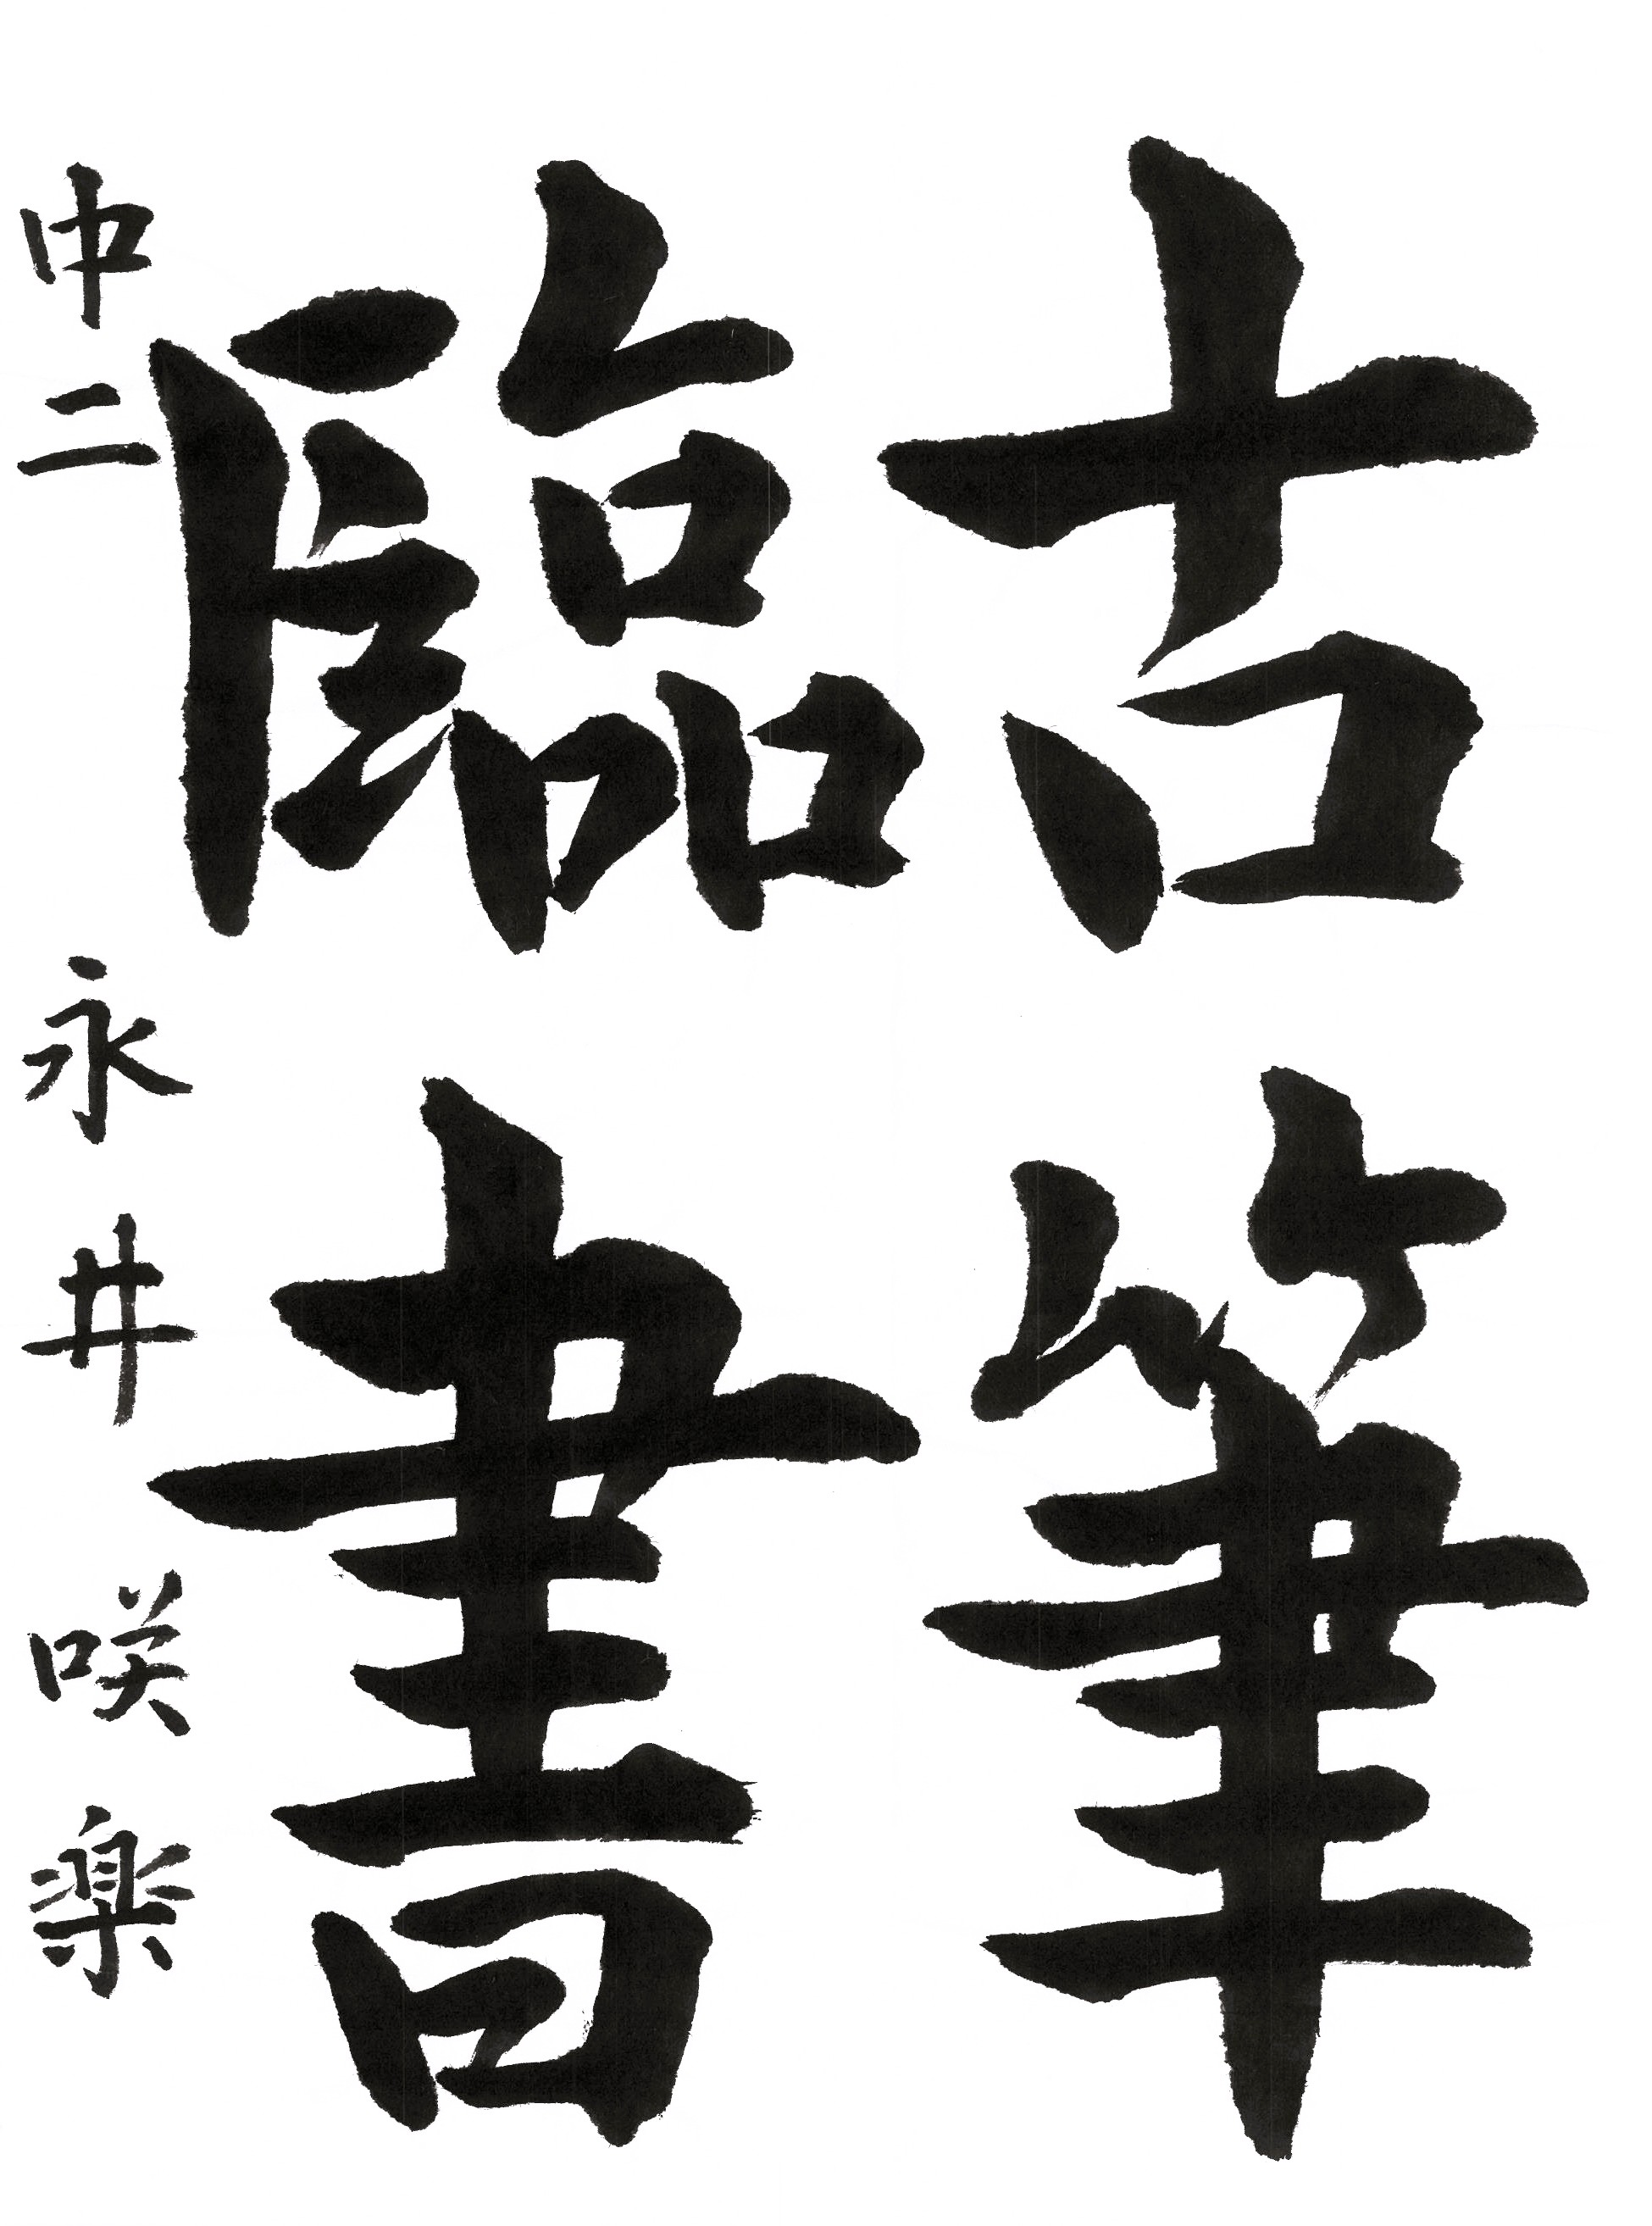 古筆
臨書
中二 永井咲楽